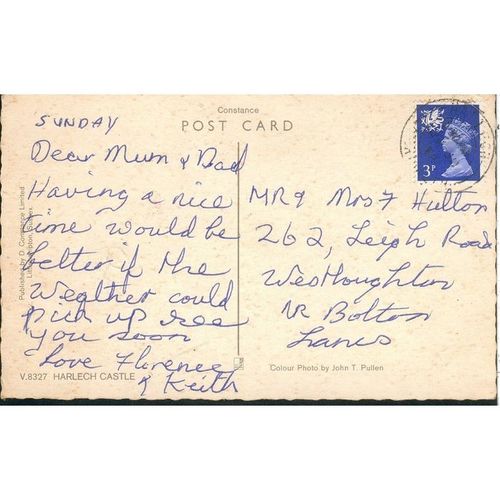 Constance
POST CARD
SUNDAY
Dear Mum & Dad
Having a nice
time would be
better if the
Wegther could
pick up see
you soon
Love Florence
& Keith
MR & Mrs F Hulton
262, Leigh Road
Westhoughton
NR Bolton
Lancs
3P
Published by D. Constance Limited
Littlehampton, Sussex
V.8327 HARLECH CASTLE
Colour Photo by John T. Pullen